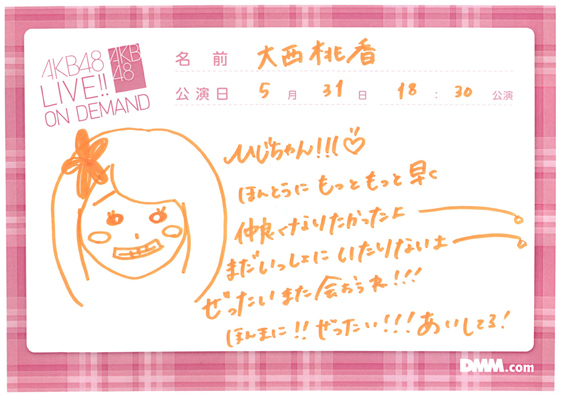 AKB48
LIVE!!
ON DEMAND
AKB
48
名前 大西桃香
公演日 5月31日 18:30 公演
ひじちゃん!!!♡
ほんとうに もっともっと早く
仲良くなりたかったよ
まだいっしょに いたりないよ
ぜったいまた会おうね!!!
ほんまに!!ぜったい!!!あいしてる!
DMM.com